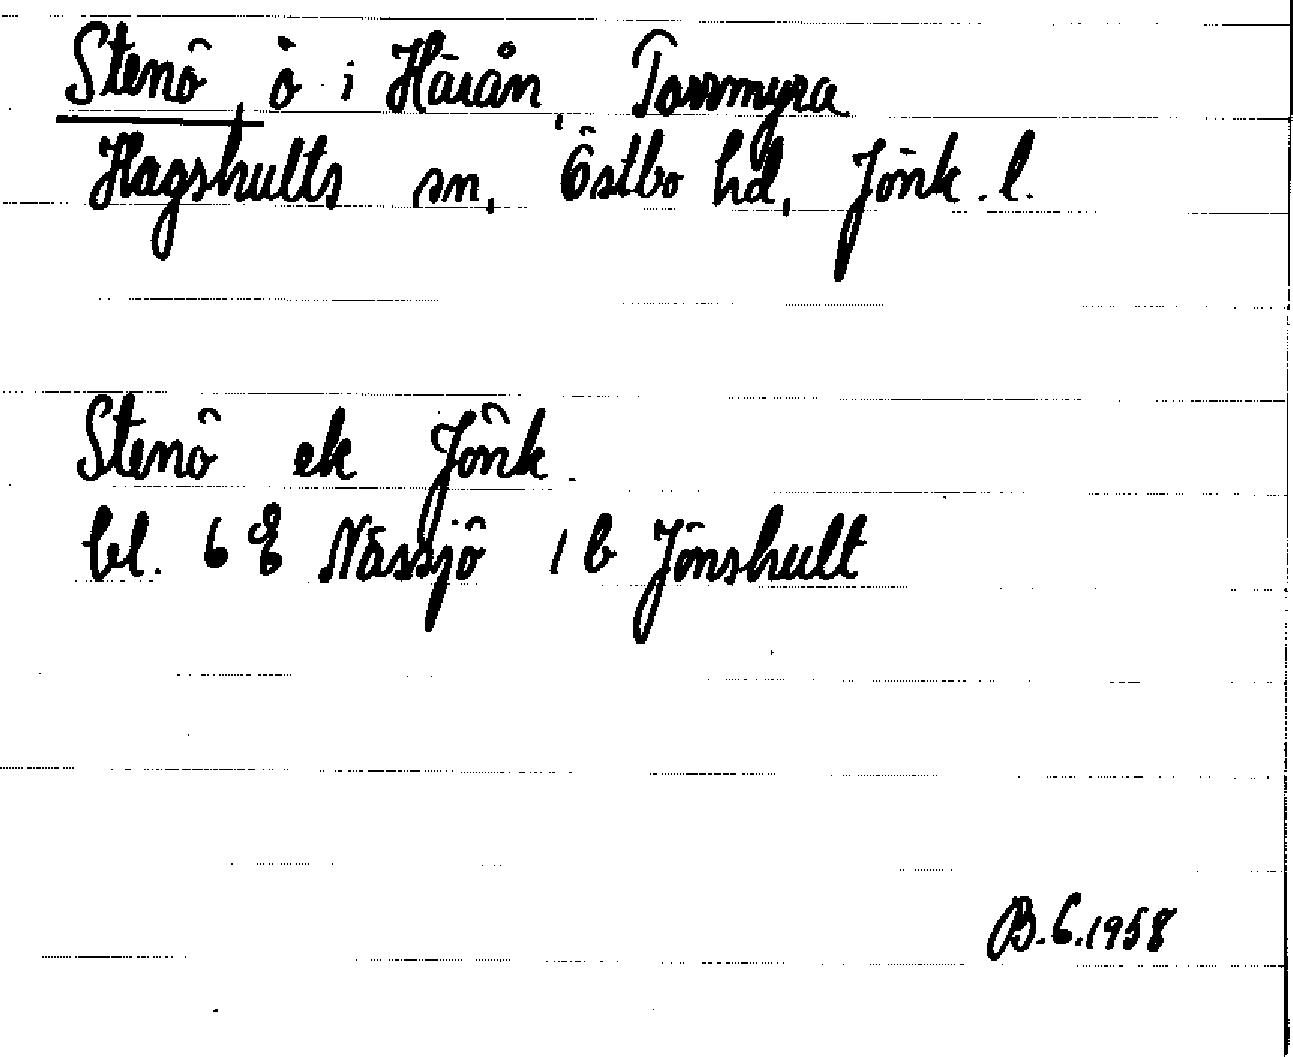 Stenö, ö i Härån, Torrmyra
Hagshults sn, Östbo hd, Jönk. l.
Stenö ek Jönk.
bl. 6 E Nässjö 1 b Jönshult
B.G.1958